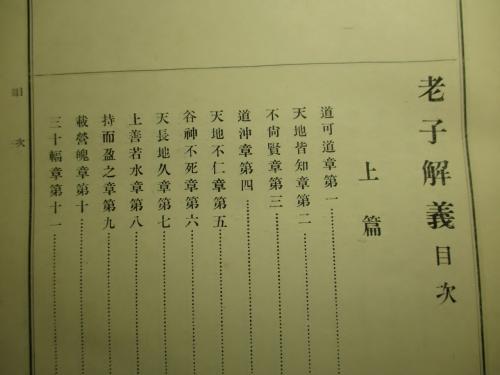 老子解義目次
上篇
道可道章第一
天地皆知章第二
不尙賢章第三
道沖章第四
天地不仁章第五
谷神不死章第六
天長地久章第七
上善若水章第八
持而盈之章第九
載營魄章第十
三十輻章第十一
目次